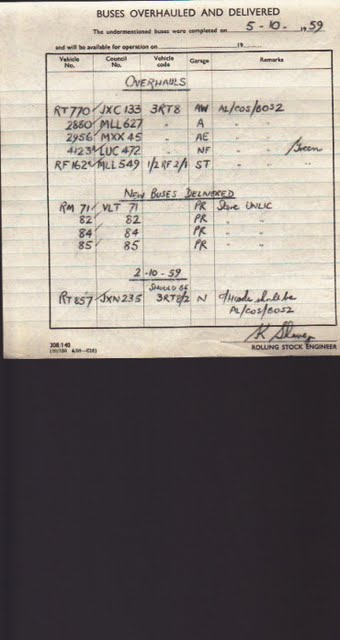 BUSES OVERHAULED AND DELIVERED
The undermentioned buses were completed on 5-10-1959
and will be available for operation on 19
Vehicle No. Council No. Vehicle code Garage Remarks
OVERHAULS
RT 770 JXC 133 3RT8 AW AL/COS/BOS2
2880 MLL 627 " A " "
2956 MXX 45 " AE " "
4123 LUC 472 " NF " " Green
RF 162 MLL 549 1/2 RF 2/1 ST " "
NEW BUSES DELIVERED
RM 71 VLT 71 PR Store UNLIC
82 82 PR " "
84 84 PR " "
85 85 PR " "
2-10-59
SHOULD BE
RT 857 JXN 235 3RT8/2 N should be
AL/COS/BOS2
ROLLING STOCK ENGINEER
308/140